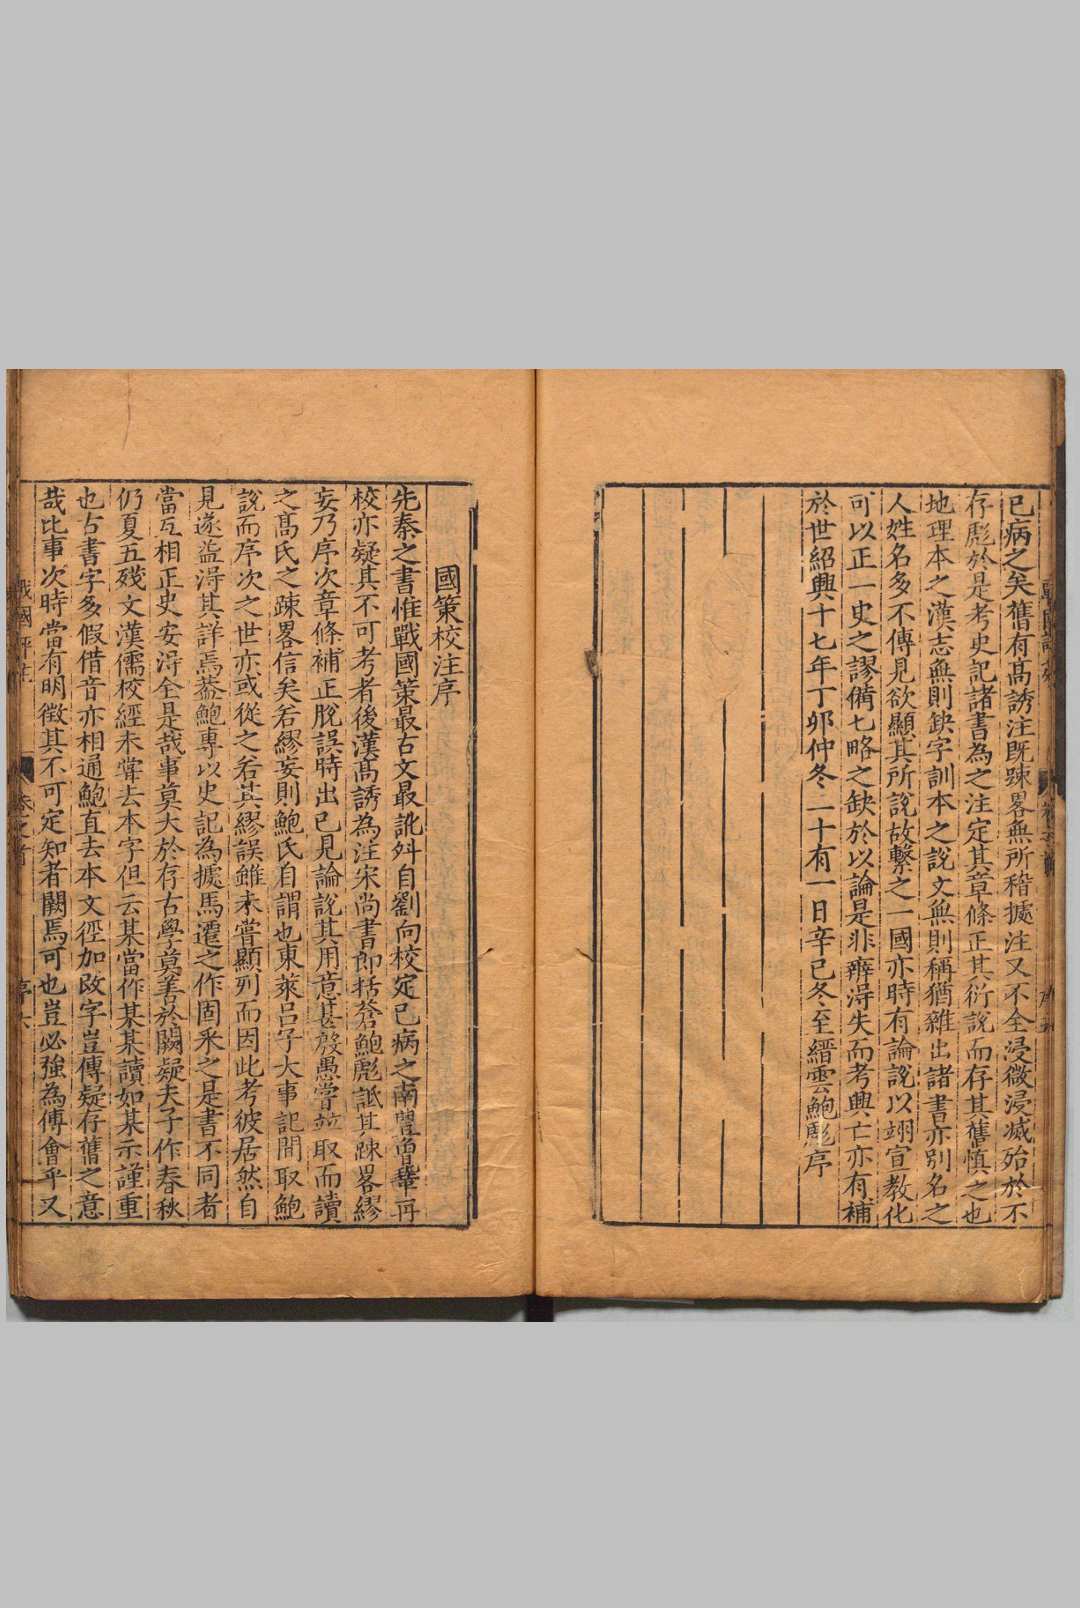 已病之矣舊有髙誘注既踈畧無所稽據注又不全浸微浸滅殆於不
存彪於是考史記諸書為之注定其章條正其衍說而存其舊慎之也
地理本之漢志無則缺字訓本之說文無則稱猶雜出諸書亦別名之
人姓名多不傳見欲顯其所說故繫之一國亦時有論說以翊宣教化
可以正一史之謬備七略之缺於以論是非辨淂失而考興亡亦有補
於世紹興十七年丁卯仲冬二十有一日辛已冬至縉雲鮑彪序
國策校注序
先秦之書惟戰國策最古文最訛舛自劉向校定已病之南豐曽鞏再
校亦疑其不可考者後漢髙誘為注宋尚書郎括蒼鮑彪詆其踈畧繆
妄乃序次章條補正脫誤時出已見論說其用意甚慇愚嘗竝取而讀
之髙氏之踈畧信矣若繆妄則鮑氏自謂也東萊吕子大事記間取鮑
說而序次之世亦或從之若其繆誤雖未嘗顯列而因此考彼居然自
見遂盜淂其詳焉葢鮑專以史記為據馬遷之作固釆之是書不同者
當互相正史安淂全是哉事莫大於存古學莫善於闕疑夫子作春秋
仍夏五殘文漢儒校經未甞去本字但云某當作某某讀如某示謹重
也古書字多假借音亦相通鮑直去本文徑加改字豈傳疑存舊之意
哉比事次時當有明徵其不可定知者闕焉可也豈必強為傅會乎又
戰國評注 卷之首 序六